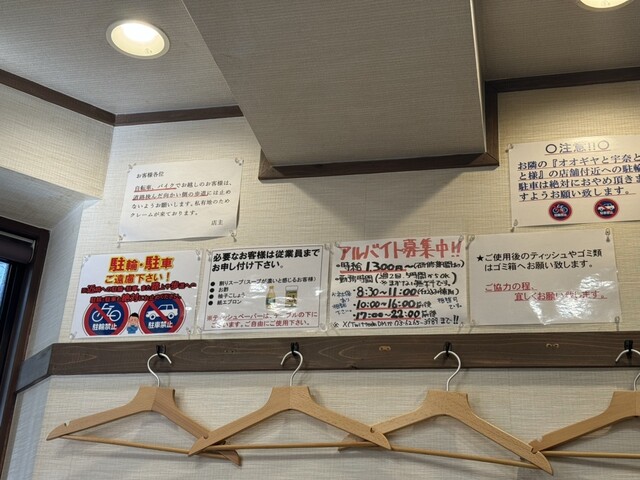 お客様各位
自転車、バイクでお越しのお客様は、
道路挟んだ向かい側の歩道には止め
ないようお願いします。私有地のため
クレームが来ております。
店主
〇注意!!〇
お隣の『オオギヤと宇奈と
と様』の店舗付近への駐輪
駐車は絶対におやめ頂きま
すようお願い致します。
駐輪・駐車
ご遠慮下さい!
駐輪禁止
駐車禁止
必要なお客様は従業員まで
お申し付け下さい。
割りスープ(スープが濃いと感じるお客様)
お酢
柚子こしょう
紙エプロン
※ティッシュペーパーは、テーブルの下に
ございます。ご自由にご使用下さい。
アルバイト募集中!!
時給 1300円〜
8:30〜11:00
10:00〜16:00
17:00〜22:00
★ご使用後のティッシュやゴミ類
はゴミ箱へお願い致します。
ご協力の程、
宜しくお願い致します。